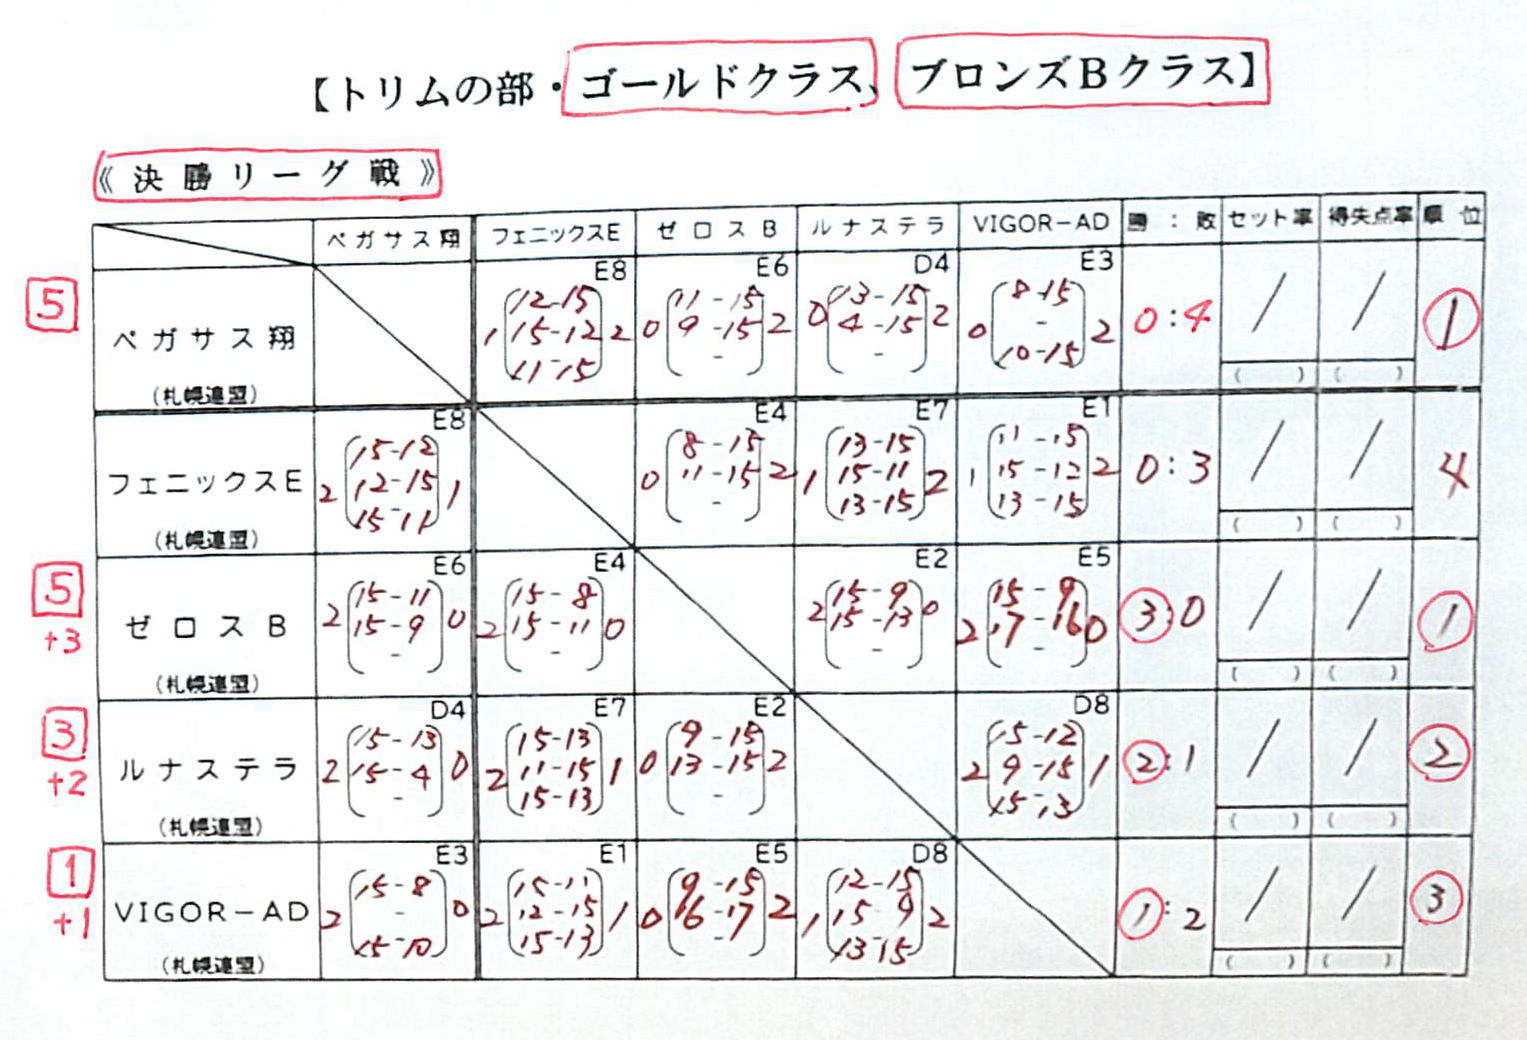 【トリムの部・ゴールドクラス、ブロンズBクラス】
《決勝リーグ戦》
ペガサス翔 フェニックスE ゼロスB ルナステラ VIGOR-AD 勝:敗 セット率 得失点率 順位
E8 E6 D4 E3
12-15 11-15 13-15 8-15
5 ペガサス翔 1 15-12 2 0 9-15 2 0 4-15 2 0 - 2 0:4 / / 1
11-15 - - 10-15
(札幌連盟) ( ) ( )
E8 E4 E7 E1
15-12 8-15 13-15 11-15
フェニックスE 2 12-15 1 0 11-15 2 1 15-11 2 1 15-12 2 0:3 / / 4
15-11 - 13-15 13-15
(札幌連盟) ( ) ( )
E6 E4 E2 E5
15-11 15-8 15-9 15-9
5 ゼロスB 2 15-9 0 2 15-11 0 2 15-13 0 2 17-16 0 3:0 / / 1
+3 - - - -
(札幌連盟) ( ) ( )
D4 E7 E2 D8
15-13 15-13 9-15 15-12
3 ルナステラ 2 15-4 0 2 11-15 1 0 13-15 2 2 9-15 1 2:1 / / 2
+2 - 15-13 - 15-13
(札幌連盟) ( ) ( )
E3 E1 E5 D8
15-8 15-11 9-15 12-15
1 VIGOR-AD 2 - 0 2 12-15 1 0 16-17 2 1 15-9 2 1:2 / / 3
+1 15-10 15-13 - 13-15
(札幌連盟) ( ) ( )